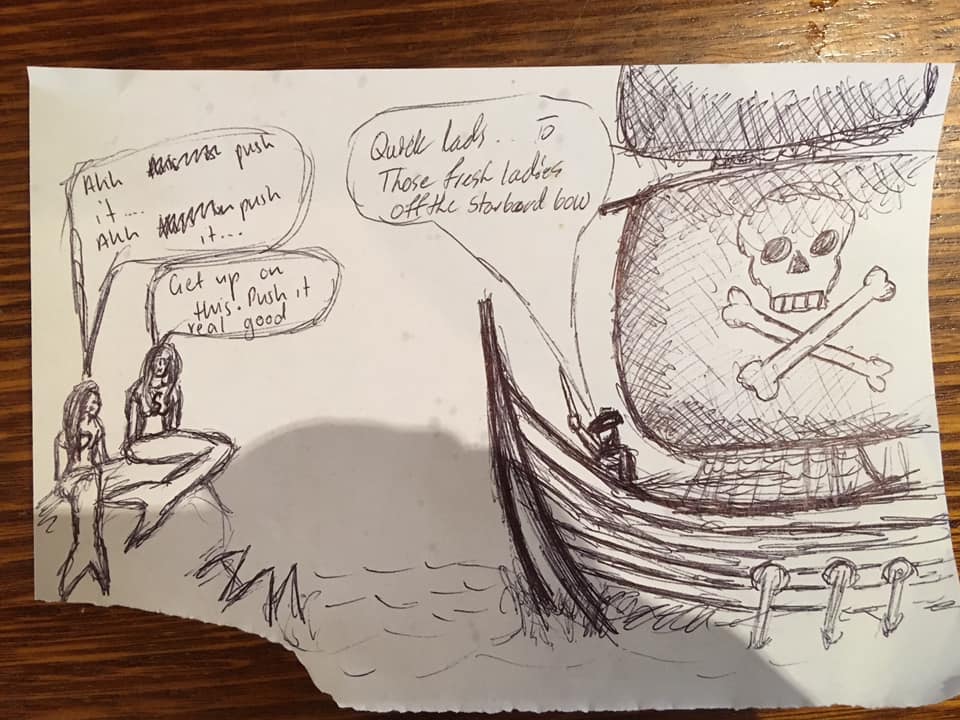 Ahh push
it....
Ahh push
it...
Get up on
this. Push it
real good
Quick lads... To
Those fresh ladies
off the Starboard bow
P
S